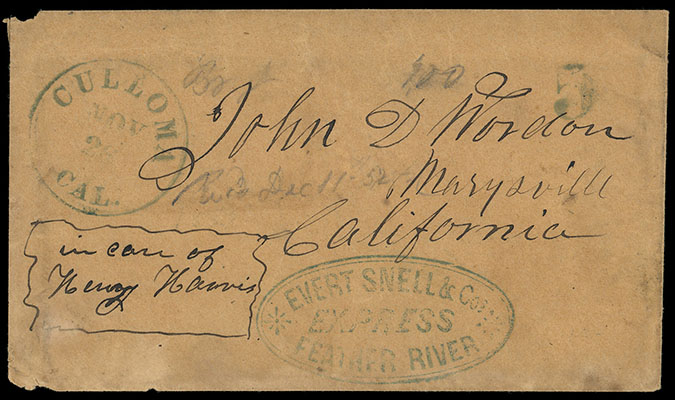 CULLOMA
NOV
CAL.
5
John D Wordon
Marysville
California
Dec 11
in care of
Henry Harris
EVERT SNELL & Co's
EXPRESS
FEATHER RIVER